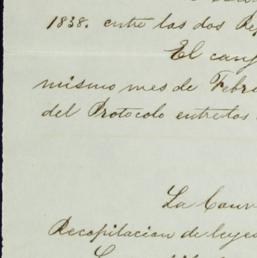 1838. entre las dos Rep
El canj
mismo mes de Febr
del Protocolo entre los
La Conv
Recopilacion de leyes